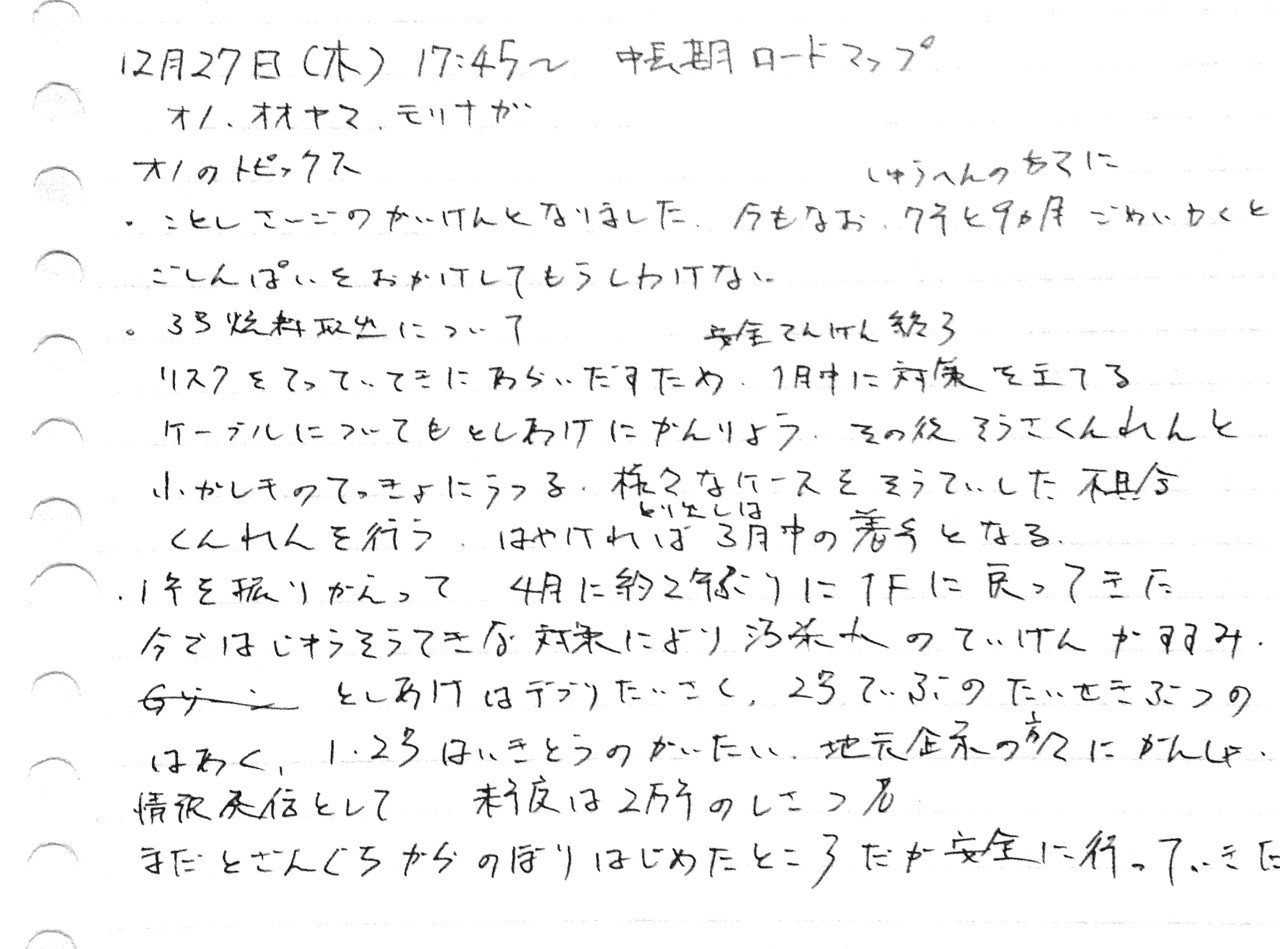 12月27日(木) 17:45〜 中長期ロードマップ
オノ、オオヤマ、モリナガ
オノのトピックス
しゅうへんの
・ことしさいごのかいけんとなりました。今もなお、7年と9ヵ月 ごめいわくと
ごしんぱいをおかけしてもうしわけない。
・3号燃料取出について 安全てんけん終了
リスクをてっていてきにあらいだすため、1月中に対策を立てる
ケーブルについてもとしあけにかんりょう、その後そうさくんれんと
小がれきのてっきょにうつる、様々なケースをそうていした不具合
とり出しは
くんれんを行う、はやければ3月中の着手となる。
・1年を振りかえって 4月に約2年ぶりに1Fに戻ってきた
今ではじゅうそうてきな対策により汚染水のていげんがすすみ、
としあけはデブリたいさく、2号ていぶのたいせきぶつの
はあく、1・2号はいきとうのかいたい、地元企業の方々にかんしゃ、
情報発信として 来年度は2万人のしさつ者
まだとざんぐちからのぼりはじめたところだが安全に行っていきた